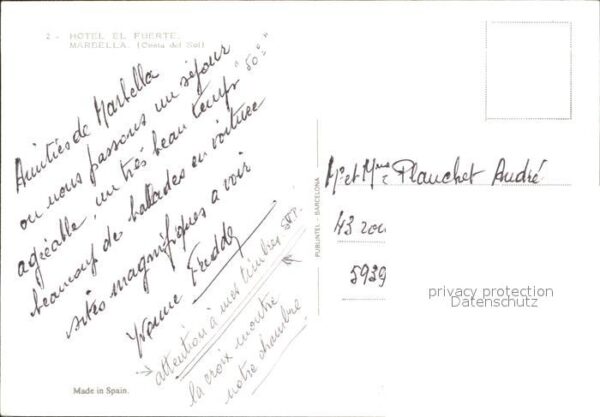 2 - HOTEL EL FUERTE.
MARBELLA. (Costa del Sol)
Amitiés de Marbella
ou nous passons un séjour
agréable, un très beau temps "50°"
beaucoup de ballades en voiture
sites magnifiques a voir
Yvonne
attention à mes timbres SVP.
la croix montre
notre chambre
Made in Spain.
PUBLINTEL - BARCELONA
Mr et Mme Planchet André
43 rou
5939
privacy protection
Datenschutz